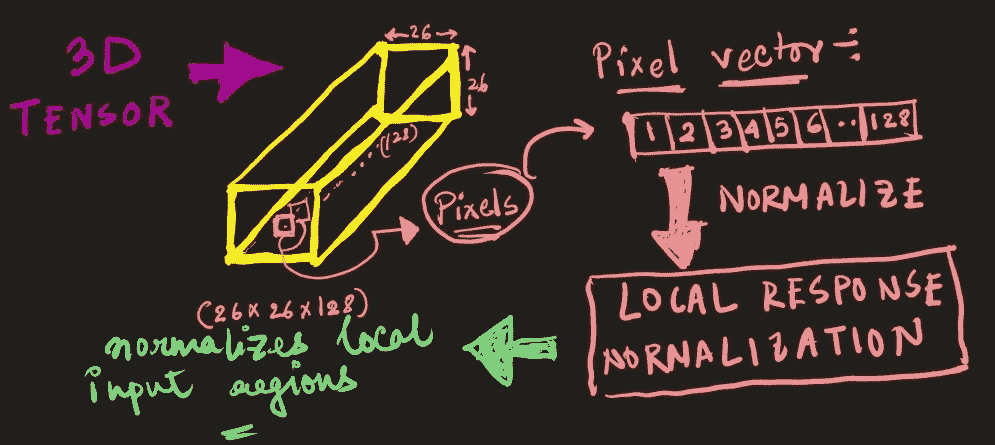 3D
TENSOR
26
26
(128)
(26 x 26 x 128)
Pixels
Pixel vector :-
1 2 3 4 5 6 .. 128
NORMALIZE
LOCAL RESPONSE
NORMALIZATION
normalizes local
input regions